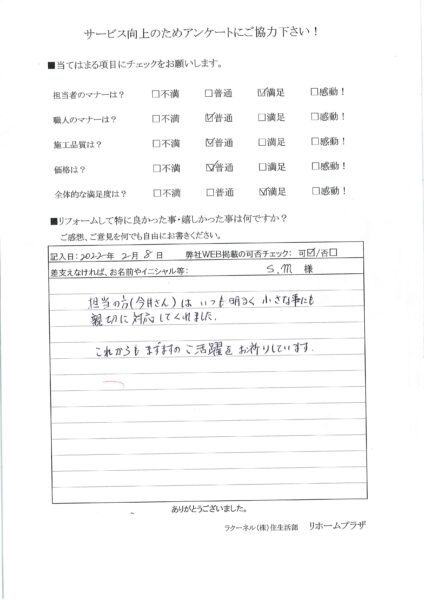 サービス向上のためアンケートにご協力下さい！
■当てはまる項目にチェックをお願いします。
担当者のマナーは？ □不満 □普通 ☑満足 □感動！
職人のマナーは？ □不満 ☑普通 □満足 □感動！
施工品質は？ □不満 ☑普通 □満足 □感動！
価格は？ □不満 ☑普通 □満足 □感動！
全体的な満足度は？ □不満 □普通 ☑満足 □感動！
■リフォームして特に良かった事・嬉しかった事は何ですか？
ご感想、ご意見を何でも自由にお書きください。
記入日：2022年 2月 8日 弊社WEB掲載の可否チェック： 可☑/否□
差支えなければ、お名前やイニシャル等： S.M 様
担当の方(今井さん)は いつも明るく 小さな事にも
親切に対応してくれました.
これからも ますますの ご活躍を お祈りしています.
ありがとうございました。
ラクーネル（株）住生活館 リホームプラザ